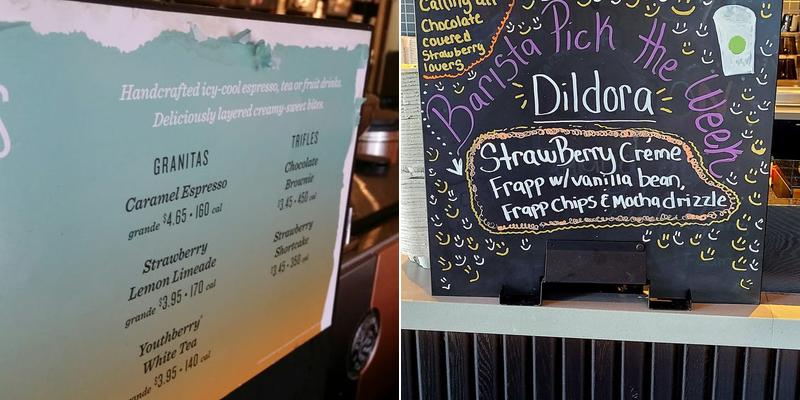 S
Handcrafted icy-cool espresso, tea or fruit drinks.
Deliciously layered creamy-sweet bites.
GRANITAS
Caramel Espresso
grande $4.65 • 160 cal
Strawberry
Lemon Limeade
grande $3.95 • 170 cal
Youthberry®
White Tea
grande $3.95 • 140 cal
TRIFLES
Chocolate
Brownie
$3.45 • 450 cal
Strawberry
Shortcake
$3.45 • 350 cal
Calling all
Chocolate
covered
Strawberry
lovers
Barista Pick the Week
Dildora
StrawBerry Créme
Frapp w/vanilla bean,
Frapp Chips & Mocha drizzle